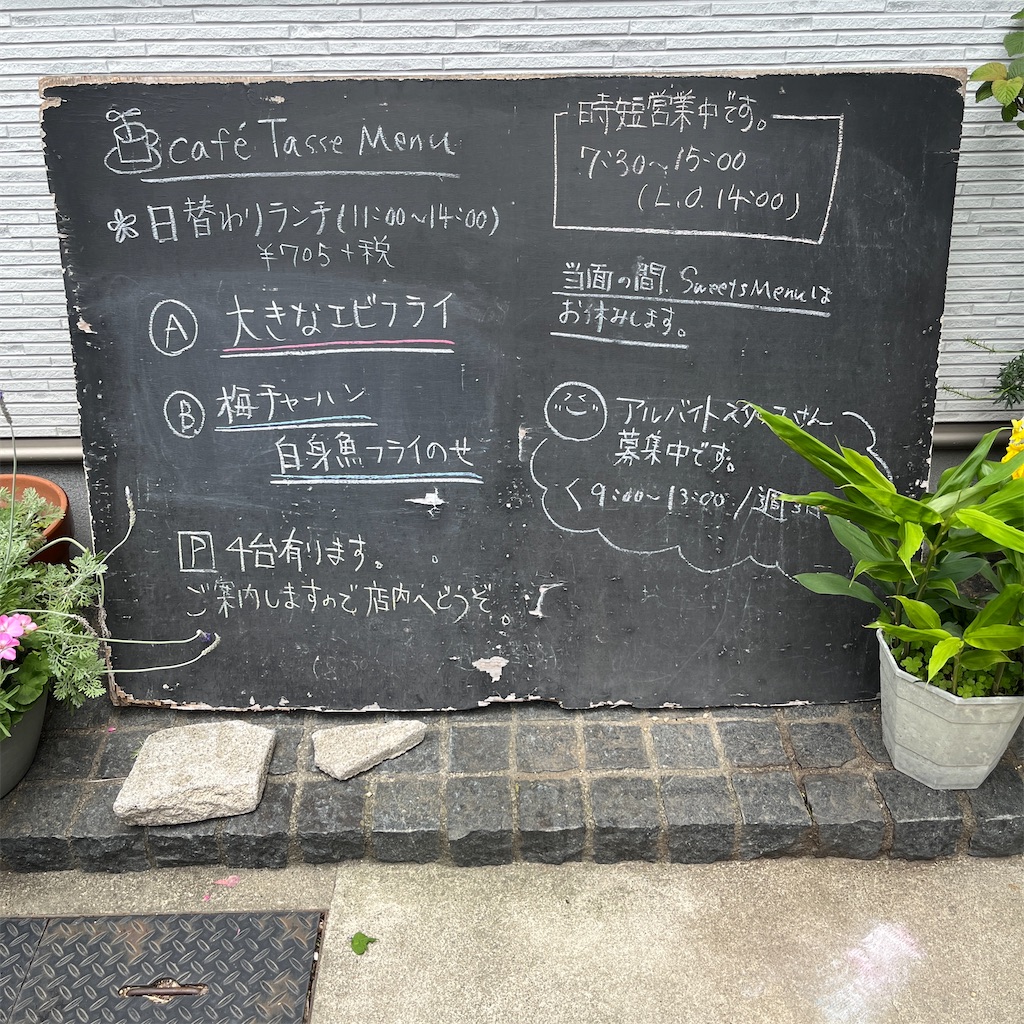 café Tasse Menu
日替わりランチ(11:00~14:00)
¥705+税
A 大きなエビフライ
B 梅チャーハン
白身魚フライのせ
P 4台有ります。
ご案内しますので店内へどうぞ。
時短営業中です。
7:30~15:00
(L.O. 14:00)
当面の間、SweetsMenuは
お休みします。
アルバイトスタッフさん
募集中です。
く 9:00~13:00/週